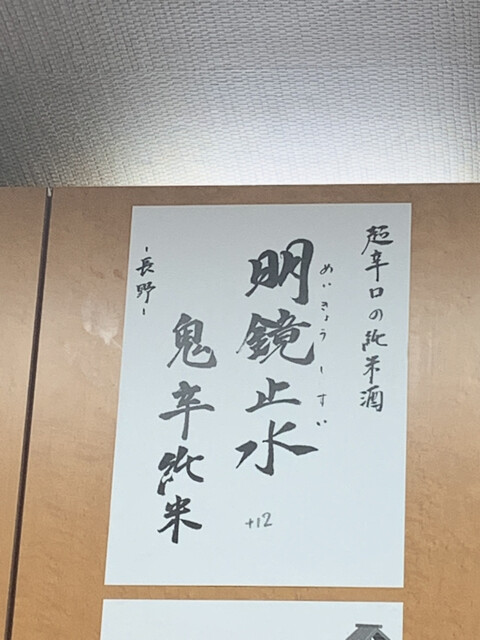 超辛口の純米酒
めいきょうしすい
明鏡止水
+12
鬼辛純米
-長野-